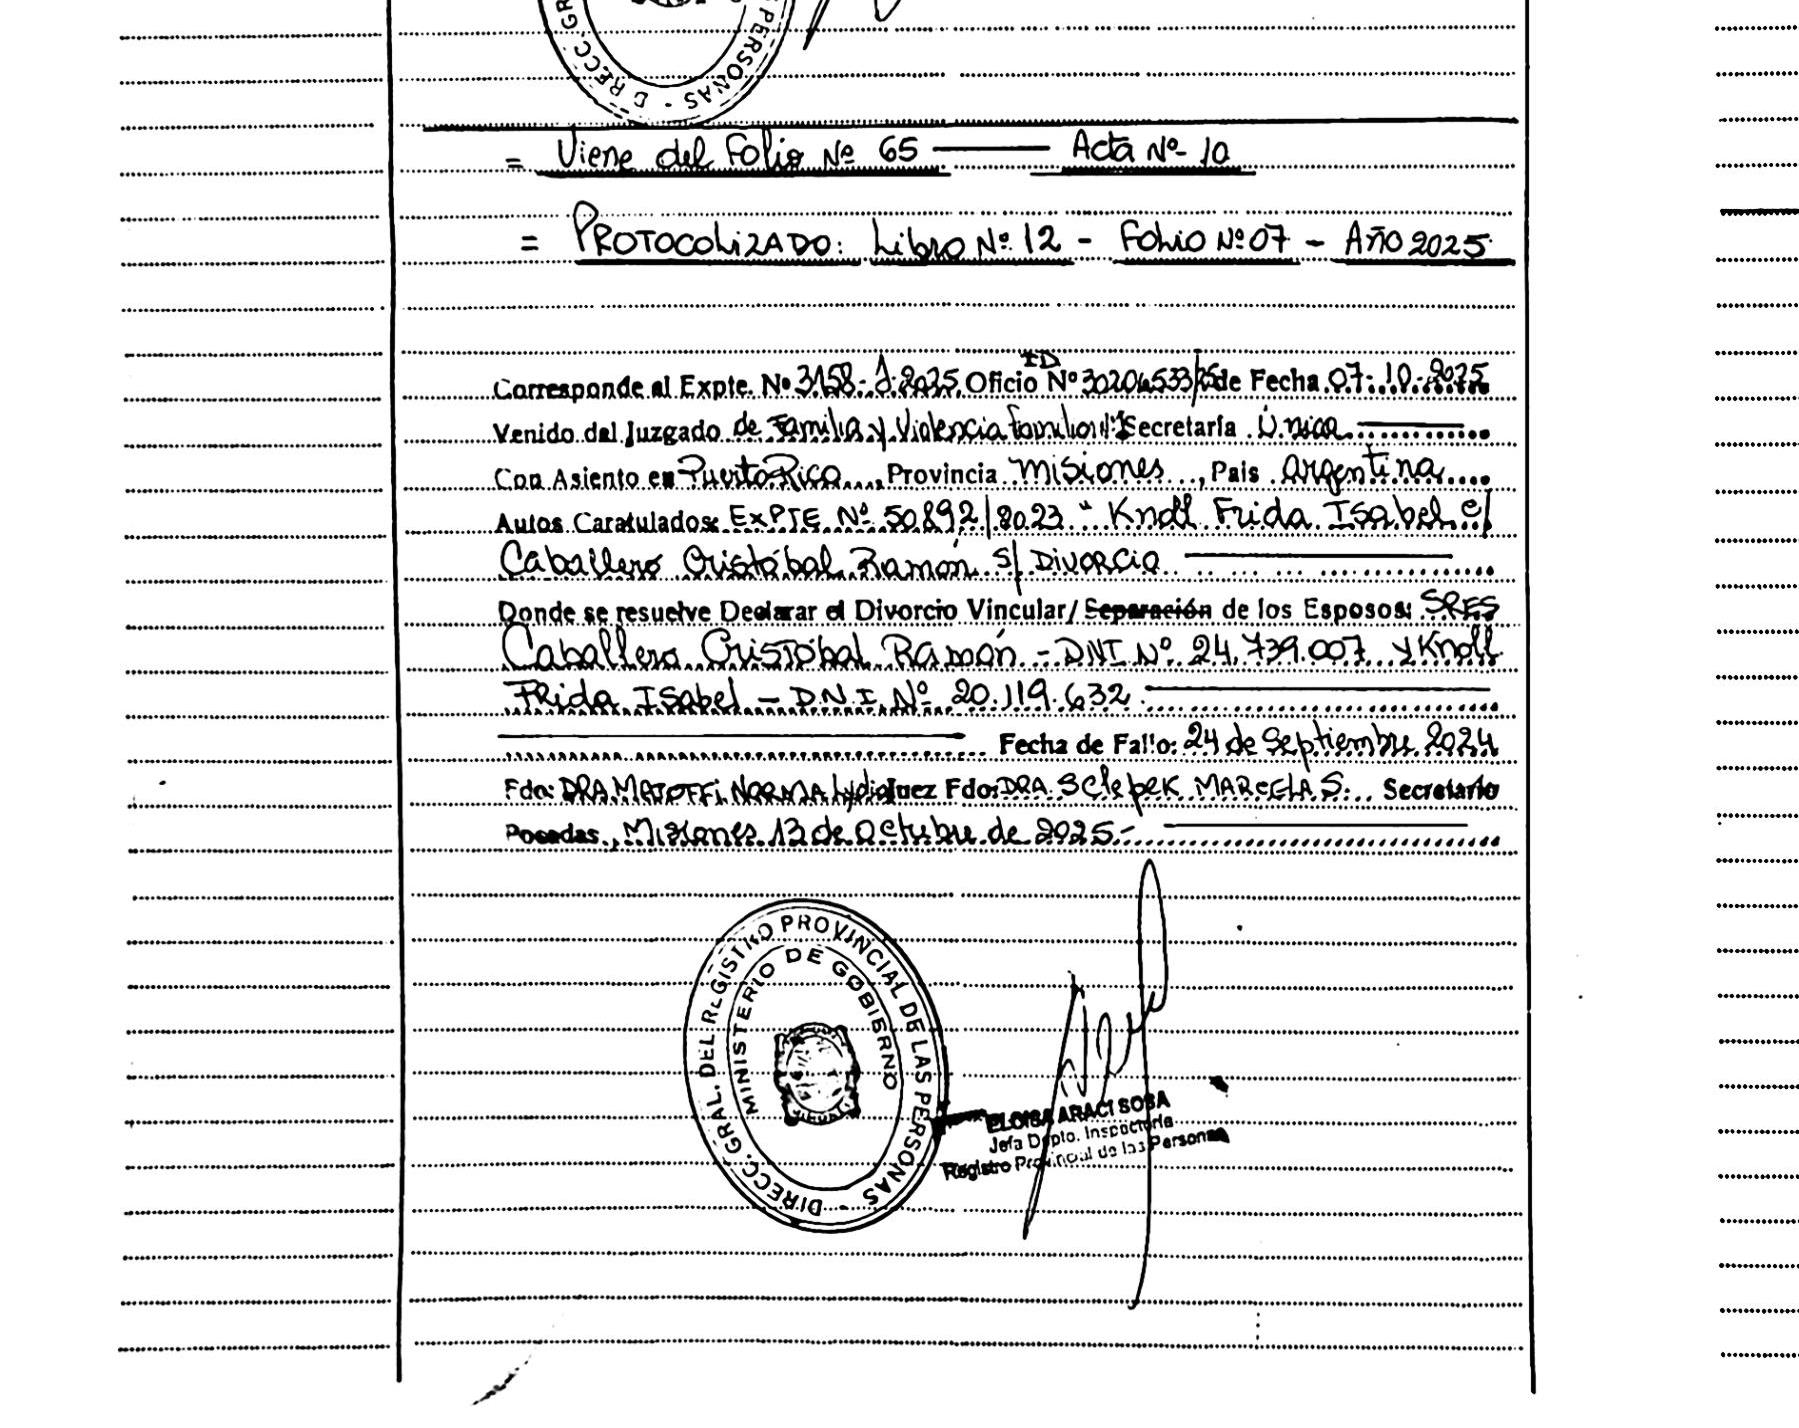 DIRECC. GR
PERSONAS -
= Viene del Folio Nº 65 —— Acta Nº 10
= PROTOCOLIZADO: Libro Nº 12 - Folio Nº 07 - AÑO 2025
ID
Corresponde al Expte. Nº 3158-J-2025 Oficio Nº 30204533/25 de Fecha 07-10-2025
Venido del Juzgado de Familia y Violencia Familiar Nº1 Secretaría Única
Con Asiento en Puerto Rico, Provincia Misiones, País Argentina
Autos Caratulados: EXPTE Nº 50892/2023 " Knoll Frida Isabel c/
Caballero Cristóbal Ramón s/ Divorcio
Donde se resuelve Declarar el Divorcio Vincular/ Separación de los Esposos: SRES
Caballero Cristóbal Ramón - DNI Nº 24.739.007 y Knoll
Frida Isabel - D.N.I. Nº 20.119.632
Fecha de Fallo: 24 de Septiembre 2024
Fdo: DRA NORMA Lydia Juez Fdo: DRA. MARCELA S. Secretario
Posadas, Misiones 13 de Octubre de 2025.-
DIRECC. GRAL. DEL REGISTRO PROVINCIAL DE LAS PERSONAS -
MINISTERIO DE GOBIERNO
ELOISA ARACI SOSA
Jefa Dpto. Inspectoría
Registro Provincial de las Personas